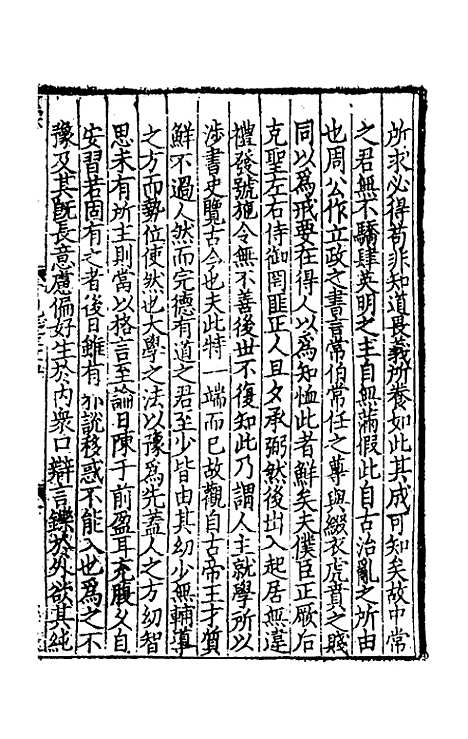 所求必得苟非知道畏義所養如此其成可知矣故中常
之君無不驕肆英明之主自無滿假此自古治亂之所由
也周公作立政之書言常伯常任之尊與綴衣虎賁之賤
同以爲戒要在得人以爲知恤此者鮮矣夫僕臣正厥后
克聖左右侍御罔匪正人旦夕承弼然後出入起居無違
禮發號施令無不善後世不復知此乃謂人主就學所以
涉書史覽古今也夫此特一端而已故觀自古帝王才質
鮮不過人然而完德有道之君至少皆由其幼少無輔導
之方而勢位使然也大學之法以豫爲先蓋人之方幼智
思未有所主則當以格言至論日陳于前盈耳充腹久自
安習若固有之者後日雖有外說移惑不能入也爲之不
豫及其旣長意慮偏好生於內衆口辯言鑠於外欲其純